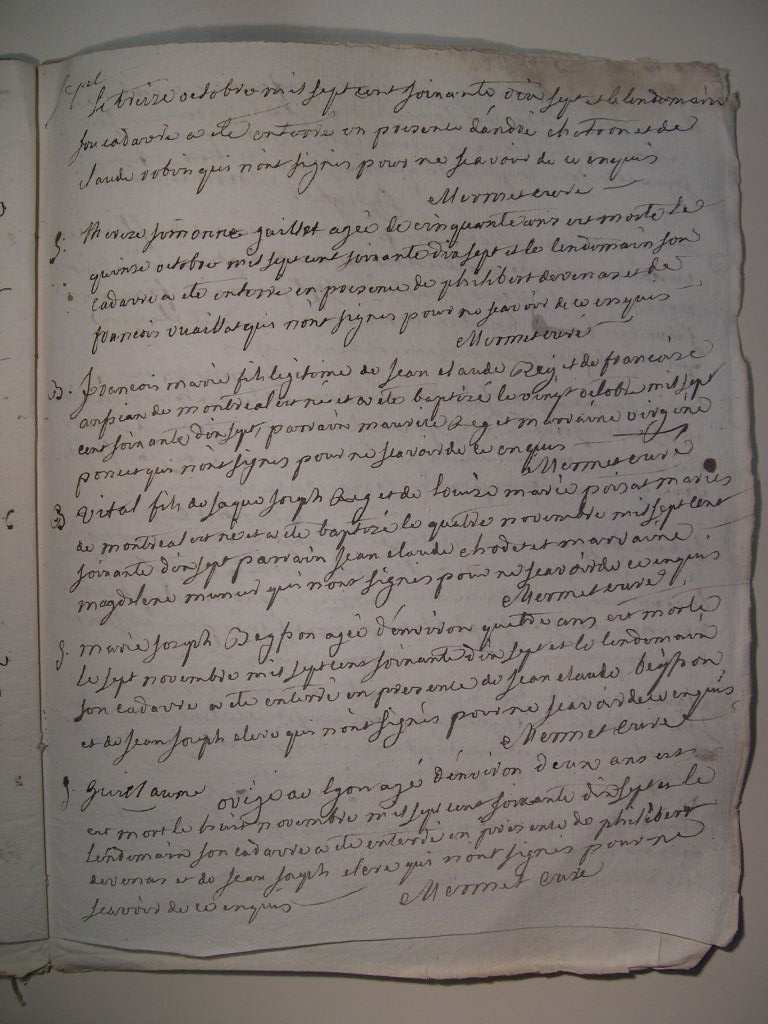 le treize octobre mil sept cent soixante dix sept et le lendemain
son cadavre a été enterré en presence d'andré chetron et de
claude robin qui n'ont signés pour ne scavoir de ce enquis
Mermet curé
S. Therese simonne guillet agée de cinquante ans est morte le
quinze octobre mil sept cent soixante dix sept et le lendemain son
cadavre a été enterré en presence de philibert devenas et de
francois vuaillat qui n'ont signés pour ne scavoir de ce enquis
Mermet curé
B. francois marie fils legitime de jean claude Rey et de francoise
de montreal est né et a été baptizé le vingt octobre mil sept
cent soixante dix sept, parrain maurice Rey et marraine virgine
poncet qui n'ont signés pour ne scavoir de ce enquis
Mermet curé
B vital fils de jaque joseph Rey et de louise marie poisat mariés
de montreal est né et a été baptizé le quatre novembre mil sept cent
soixante dix sept parrain jean claude chodet et marraine
magdelene qui n'ont signés pour ne scavoir de ce enquis
Mermet curé
S. marie joseph Beysson agée d'environ quatre ans est morte
le sept novembre mil sept cent soixante dix sept et le lendemain
son cadavre a été enterré en presence de jean claude beysson
et de jean joseph clerc qui n'ont signés pour ne scavoir de ce enquis
Mermet curé
S. Guillaume de lyon agé d'environ deux ans est
est mort le huit novembre mil sept cent soixante dix sept et le
lendemain son cadavre a été enterré en presence de philibert
devenas et de jean joseph clerc qui n'ont signés pour ne
scavoir de ce enquis
Mermet curé